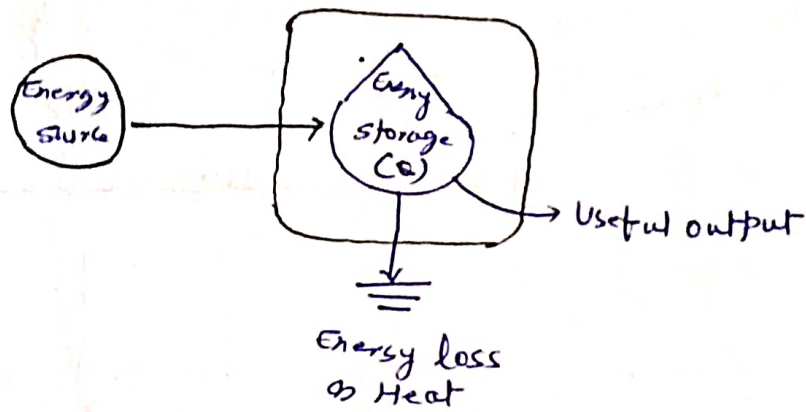 Energy
Sturce
Enrgy
Storage
(Q)
Useful output
Energy loss
as Heat